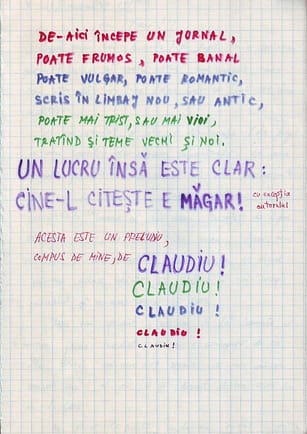 DE-AICI ÎNCEPE UN JORNAL,
POATE FRUMOS, POATE BANAL
POATE VULGAR, POATE ROMANTIC,
SCRIS ÎN LIMBAJ NOU, SAU ANTIC,
POATE MAI TRIST, SAU MAI VIOI,
TRATÎND ŞI TEME VECHI ŞI NOI.
UN LUCRU ÎNSĂ ESTE CLAR:
CINE-L CITEŞTE E MĂGAR!
cu excepţia
autorului
ACESTA ESTE UN PRELUDIU,
COMPUS DE MINE, DE CLAUDIU!
CLAUDIU!
CLAUDIU!
CLAUDIU!
CLAUDIU!